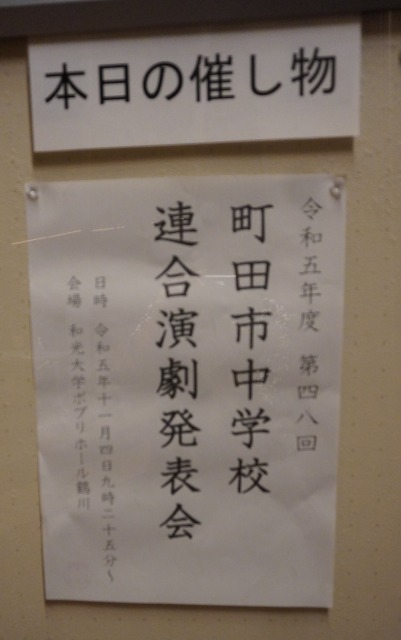 本日の催し物
令和五年度　第四八回
町田市中学校
連合演劇発表会
日時　令和五年十一月四日九時二十五分～
会場　和光大学ポプリホール鶴川